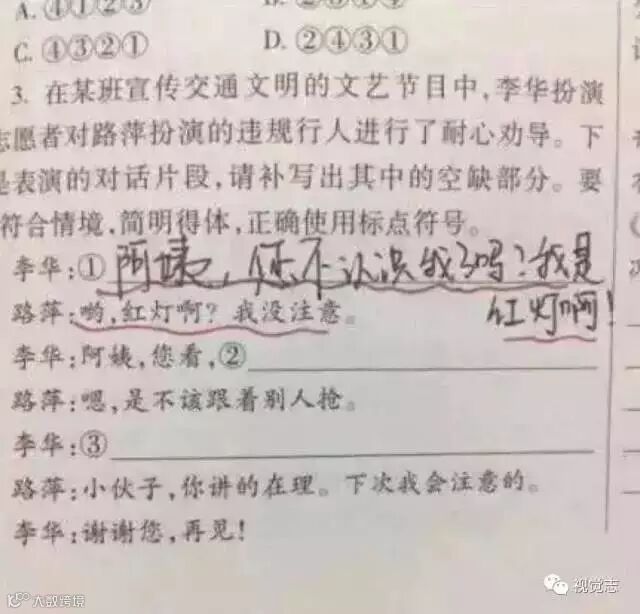 A.④①②③
C.④③②①
D.②④③①
3. 在某班宣传交通文明的文艺节目中,李华扮演
志愿者对路萍扮演的违规行人进行了耐心劝导。下
是表演的对话片段,请补写出其中的空缺部分。要
符合情境,简明得体,正确使用标点符号。
李华:①阿姨,你不认识我了吗?我是
红灯啊!
路萍:哟,红灯啊?我没注意。
李华:阿姨,您看,②
路萍:嗯,是不该跟着别人抢。
李华:③
路萍:小伙子,你讲的在理。下次我会注意的。
李华:谢谢您,再见!
大数跨境
视觉志